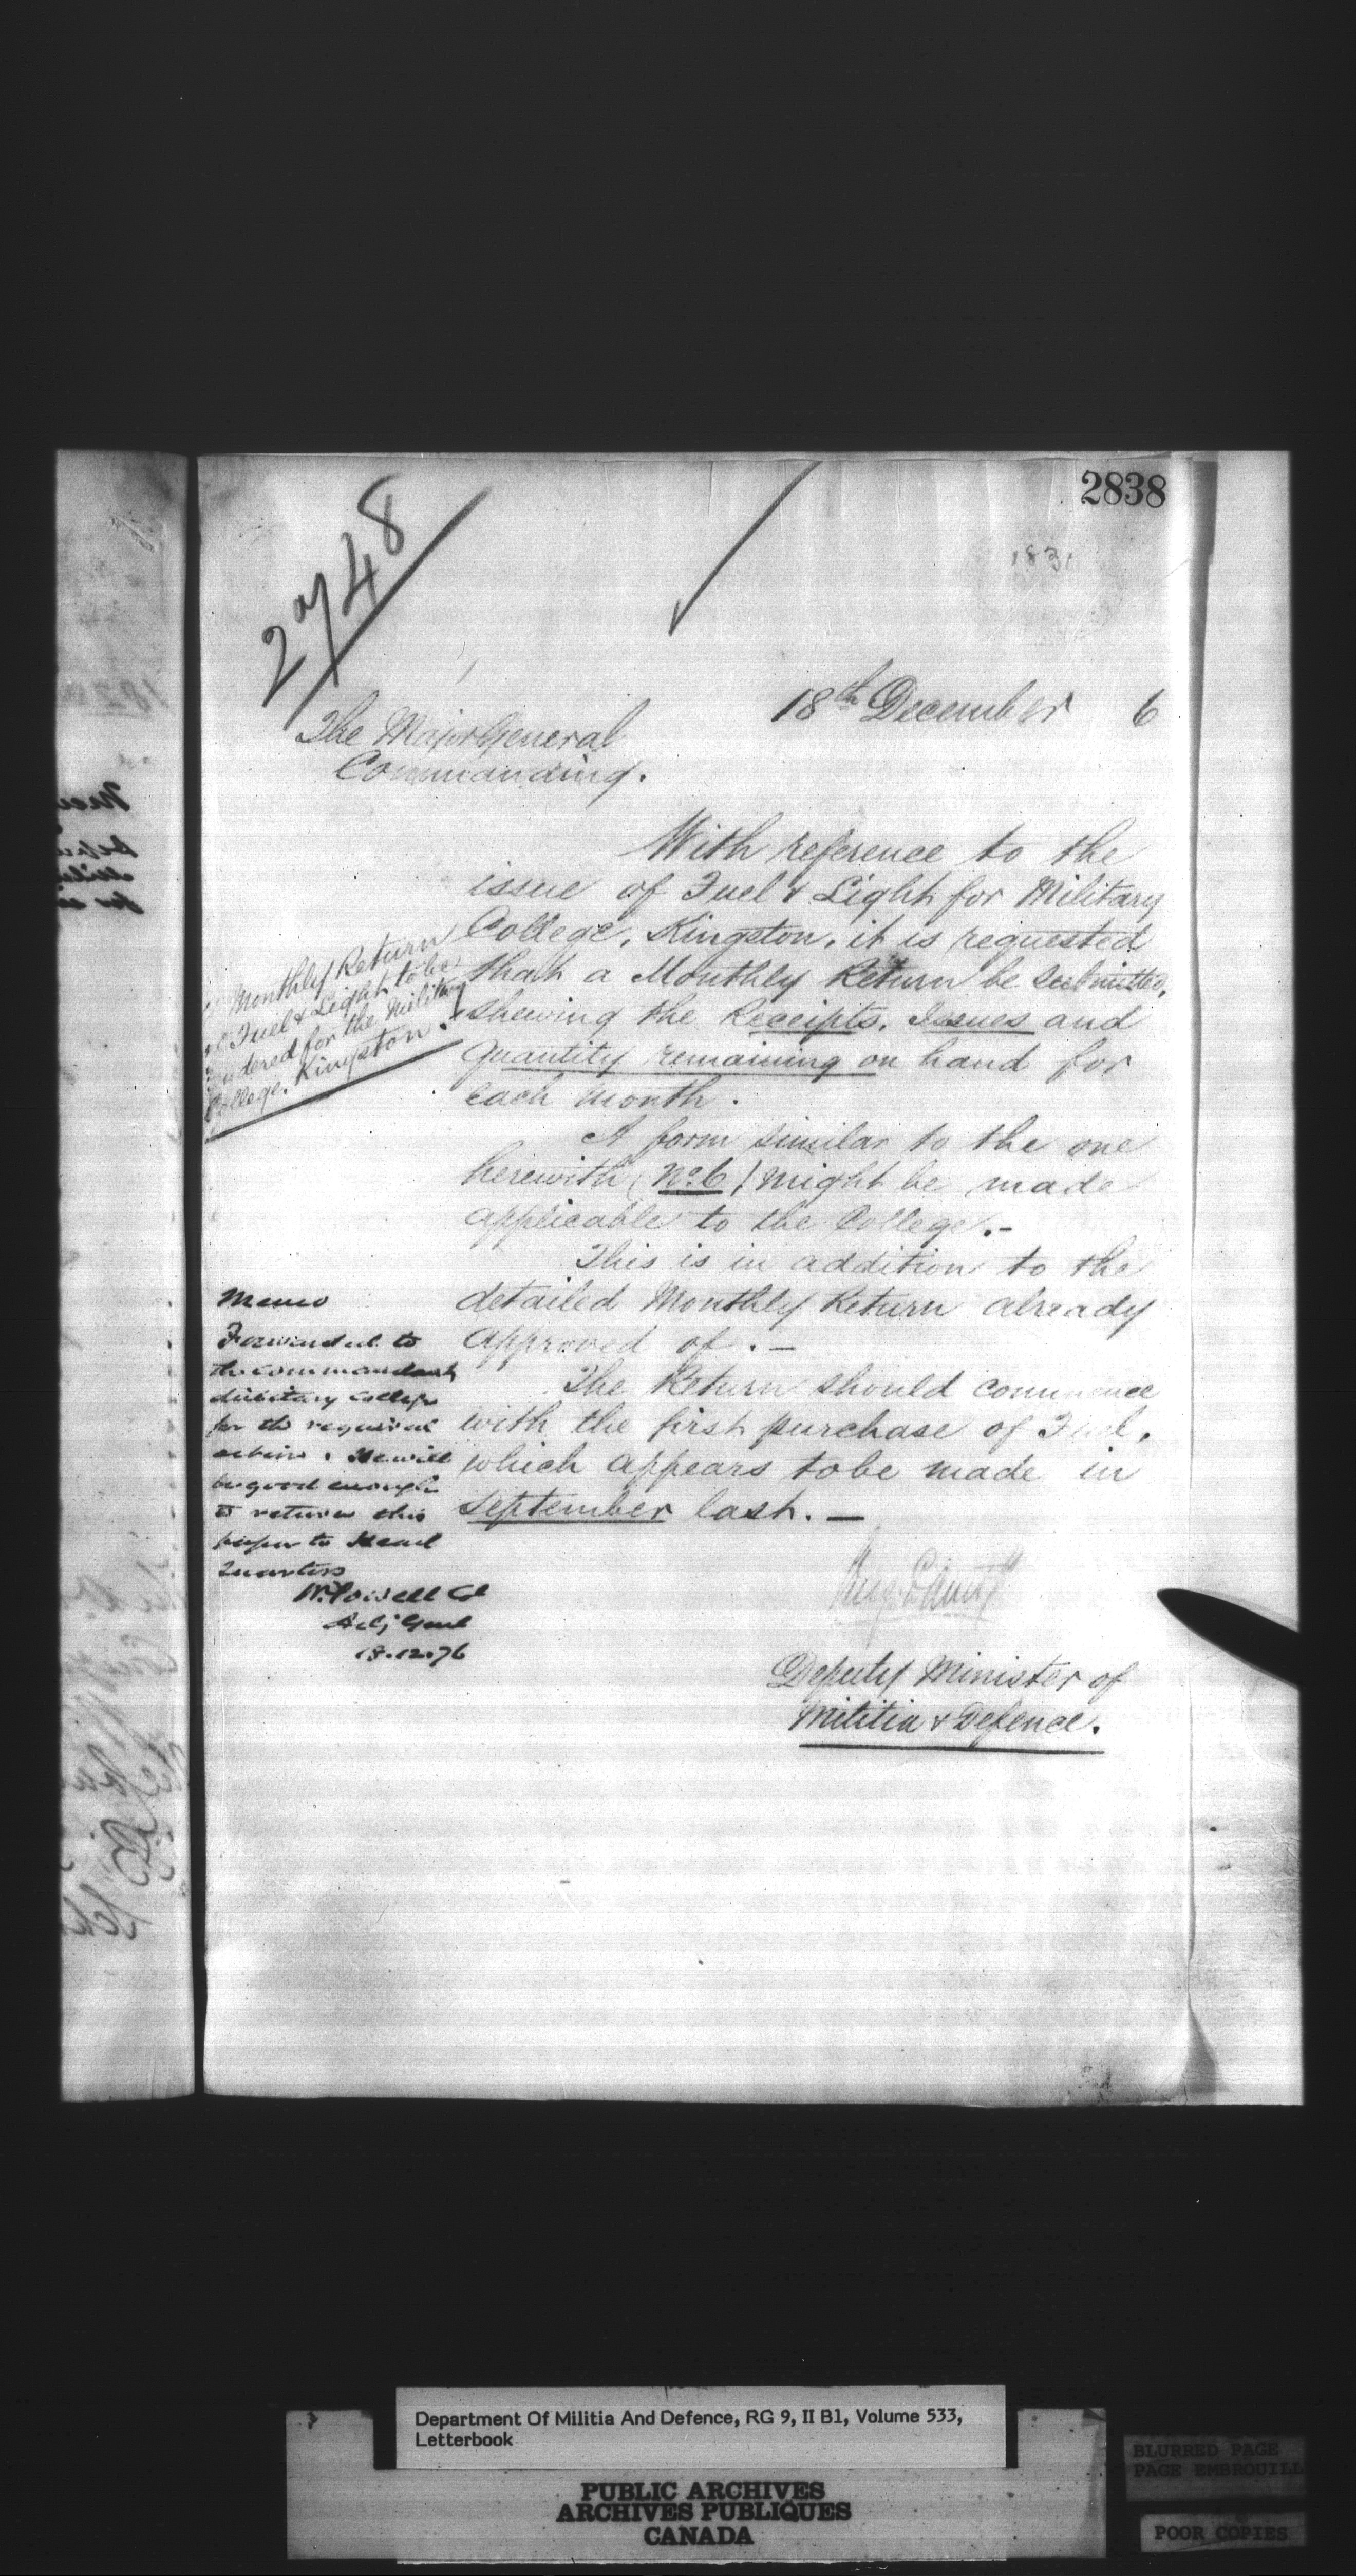 2838
2748
183
18th December 6
The Major General
Commanding.
With reference to the
issue of Fuel & Light for Military
College, Kingston, it is requested
that a Monthly Return be submitted,
shewing the Receipts, Issues and
Quantity remaining on hand for
each month.
Monthly Return
of Fuel & Light to be
rendered for the Military
College. Kingston.
A form similar to the one
herewith (No. 6) might be made
applicable to the College.-
This is in addition to the
detailed Monthly Return already
approved of.-
The Return should commence
with the first purchase of Fuel,
which appears to be made in
September last.-
Memo
Forwarded to
the Commandant
Military College
for the required
action. He will
be good enough
to return this
paper to Head
Quarters
W. Powell Col
Adj Genl
18.12.76
Deputy Minister of
Militia & Defence.
Department Of Militia And Defence, RG 9, II B1, Volume 533,
Letterbook
PUBLIC ARCHIVES
ARCHIVES PUBLIQUES
CANADA
BLURRED PAGE
PAGE EMBROUILL
POOR COPIES